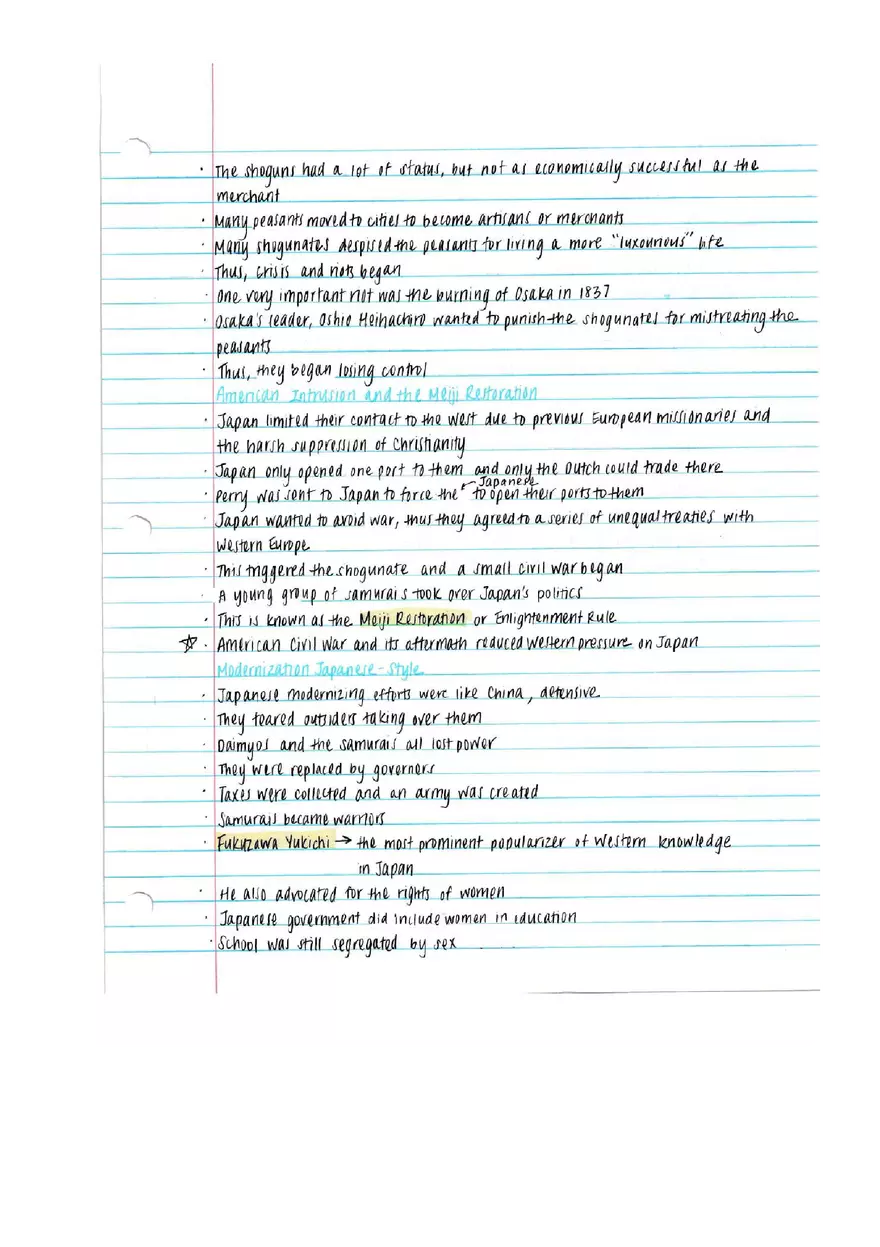 · The shoguns had a lot of status, but not as economically successful as the
merchant
· Many peasants moved to cities to become artisans or merchants
· Many shogunates despised the peasants for living a more "luxourious" life
· Thus, crisis and riots began
· One very important riot was the burning of Osaka in 1837
· Osaka's leader, Oshio Heihachiro wanted to punish the shogunates for mistreating the
peasants
· Thus, they began losing control
American Intrusion and the Meiji Restoration
· Japan limited their contact to the west due to previous European missionaries and
the harsh suppression of Christianity
· Japan only opened one port to them and only the Dutch could trade there
· Perry was sent to Japan to force the Japanese to open their ports to them
· Japan wanted to avoid war, thus they agreed to a series of unequal treaties with
Western Europe
· This triggered the shogunate and a small civil war began
· A young group of samurais took over Japan's politics
· This is known as the Meiji Restoration or Enlightenment Rule
☆ · American Civil War and its aftermath reduced Western pressure on Japan
Modernization Japanese-Style
· Japanese modernizing efforts were like China, defensive
· They feared outsiders taking over them
· Daimyos and the samurais all lost power
· They were replaced by governors
· Taxes were collected and an army was created
· Samurais became warriors
· Fukuzawa Yukichi → the most prominent popularizer of Western knowledge
in Japan
· He also advocated for the rights of women
· Japanese government did include women in education
· School was still segregated by sex